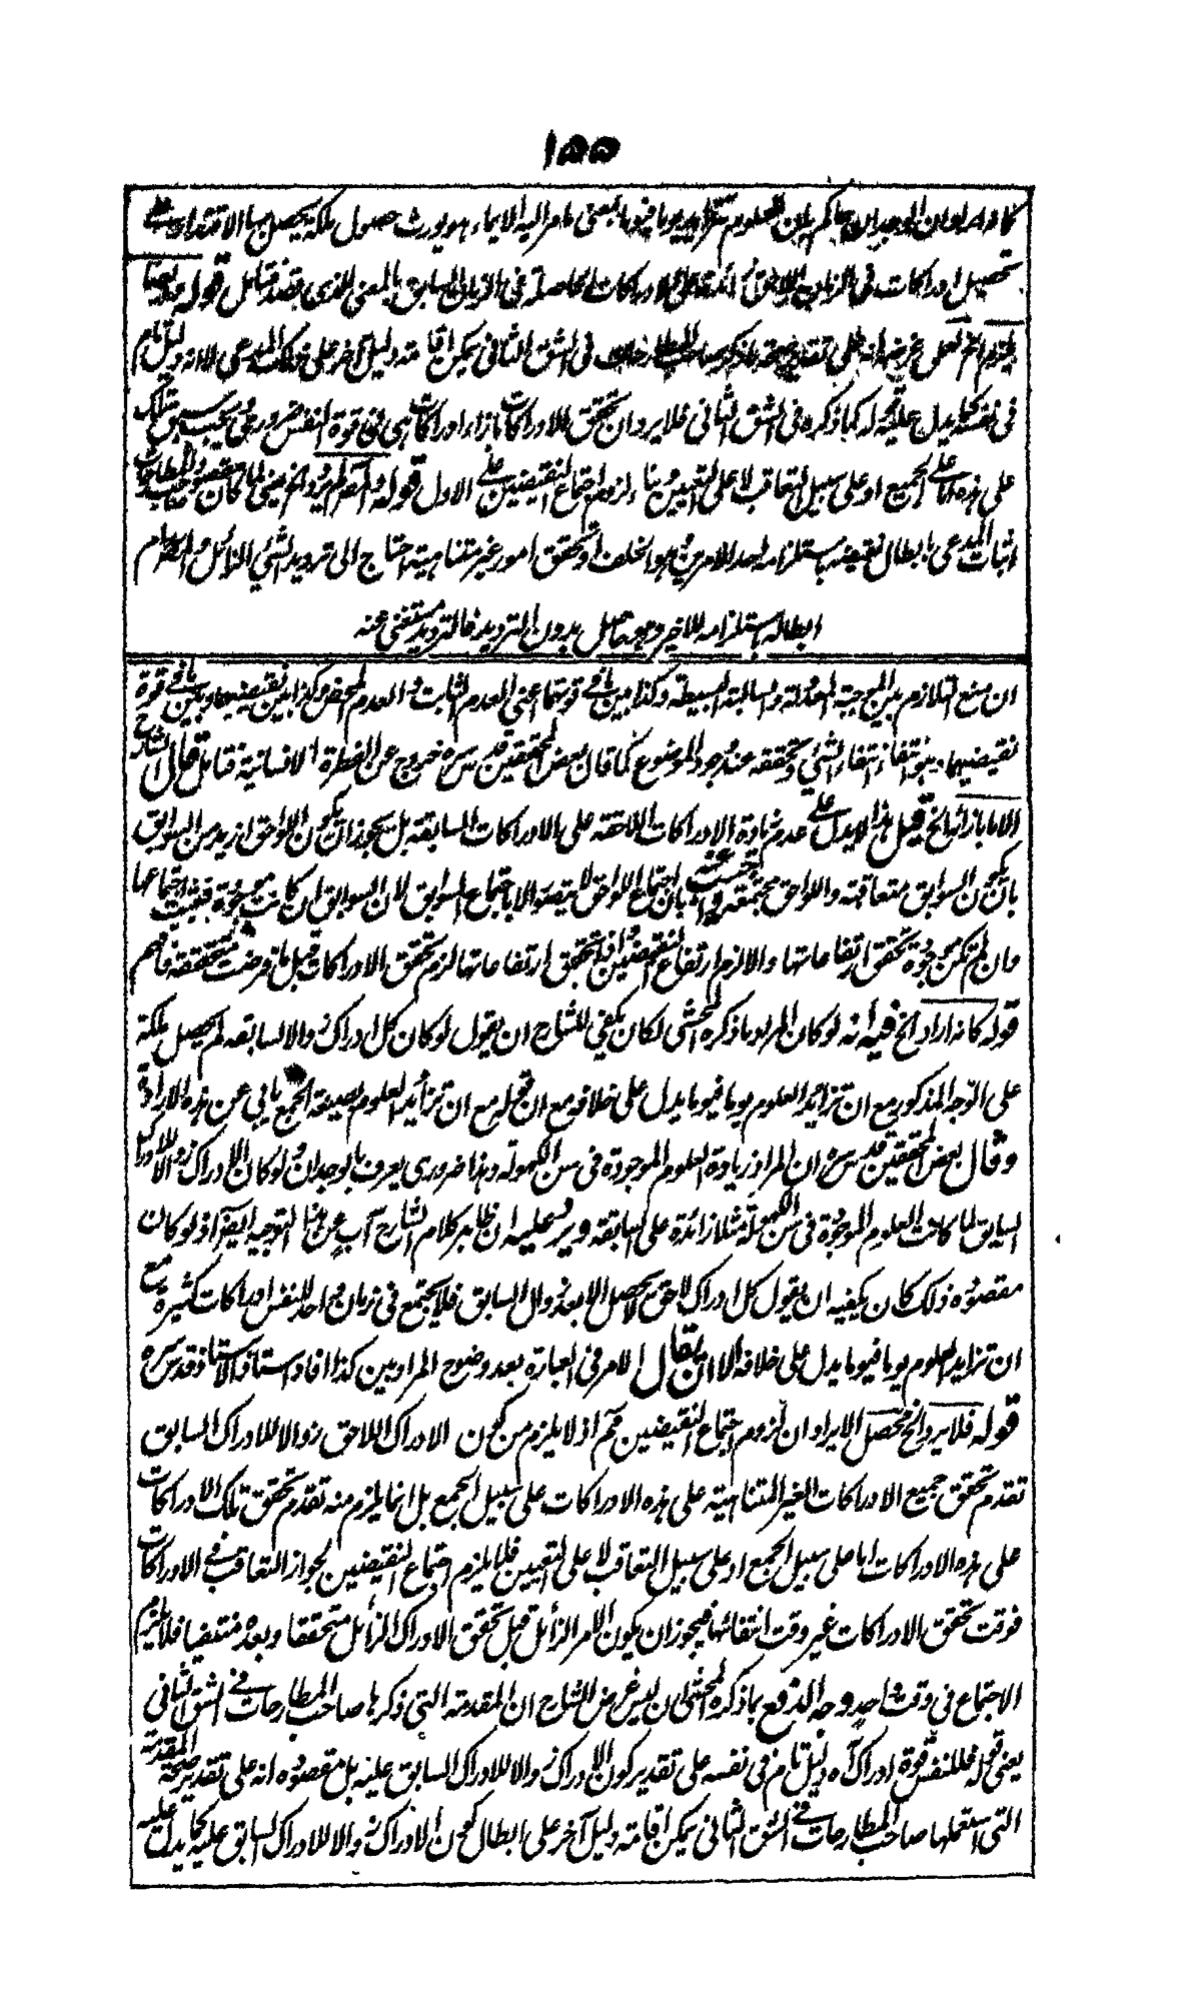 ١٥٥
كانه اراد ان الوجدان حاكم بان العلوم تتزايد يوما فيوما بمعنى ما مر اليه الايماء هو يورث حصول ملكة يحصل بها الاقتدار على
تحصيل ادراكات فى الزمان اللاحق زائدة على الادراكات الحاصلة فى الزمان السابق بالمعنى الذى قصد فتامل قوله
فى الشق الثانى يمكن اقامة دليل آخر على ذلك المدعى لا انه دليل تام
فى نفسه كما يدل عليه قوله كما ذكره فى الشق الثانى فلا يرد ان تحقق للادراكات بازاء ادراكات هى فى قوة النفس ضرورى يجب سبق تلك
على هذه اما على الجميع او على سبيل التعاقب لا على التعيين وبناء لزوم اجتماع النقيضين على الاول قوله
اثبات المدعى بابطال نقيضه باستلزامه احد الامرين هو الخلف او تحقق امور غير متناهية احتاج الى ترديد الشئ الزائل
ابطاله باستلزامه للاخير بدون الترديد فالترديد مستغنى عنه
ان منع التلازم بين الموجبة المعدولة والسالبة البسيطة وكذا بين ما فى قوتهما اعنى العدم الثابت والعدم المحض وكذا بين نقيضيهما وبين ما فى قوة
نقيضيهما انتفاء انتفاء الشئ وتحققه عند وجود الموضوع كما قال بعض المحققين قدس سره خروج عن الفطرة الانسانية فتامل قال الشارح
الا ما بازائها الخ قيل هذا لا يدل على عدم زيادة الادراكات اللاحقة على الادراكات السابقة بل يجوز ان يكون اللواحق ازيد من السوابق
بان يكون السوابق متعاقبة واللواحق مجتمعة واجيب عنه بان اجتماع اللواحق لا يتصور الا باجتماع السوابق لان السوابق ان كانت موجودة فيثبت اجتماعها
وان لم تكن موجودة تحقق ارتفاعاتها والا لزم ارتفاع النقيضين واذا تحقق ارتفاعاتها لزم تحقق الادراكات قبل ما فرضت متحققة فافهم
قوله كانه اراد الخ فيه انه لو كان المراد ما ذكره المحشى لكان يكفى للشارح ان يقول لو كان كل ادراك زوالا لسابقه لم يحصل ملكة
على الوجه المذكور مع ان تزايد العلوم يوما فيوما يدل على خلافه مع ان قوله مع ان تزايد العلوم بصيغة الجمع يابى عن هذه الارادة
وقال بعض المحققين قدس سره ان المراد زيادة العلوم الموجودة فى سن الكهولة وهذا ضرورى يعرف بالوجدان ولو كان الادراك زوالا للادراك
السابق لما كانت العلوم الموجودة فى سن الكهولة مثلا زائدة على السابقة ويرد عليه ان ظاهر كلام الشارح آب عن هذا التوجيه ايضا اذ لو كان
مقصوده ذلك كان يكفيه ان يقول كل ادراك لاحق لا يحصل الا بعد زوال السابق فلا يجتمع فى زمان واحد للنفس ادراكات كثيرة مع
ان تزايد العلوم يوما فيوما يدل على خلافه الا ان يقال الامر فى العبارة بعد وضوح المراد بين كذا افاد استاذ الاستاذ قدس سره
قوله فلا يرد الخ محصل الايراد ان لزوم اجتماع النقيضين مم اذ لا يلزم من كون الادراك اللاحق زوالا للادراك السابق
تقدم تحقق جميع الادراكات الغير المتناهية على هذه الادراكات على سبيل الجمع بل انما يلزم منه تقدم تحقق تلك الادراكات
على هذه الادراكات اما على سبيل الجمع او على سبيل التعاقب لا على التعيين فلا يلزم اجتماع النقيضين لجواز التعاقب فى الادراكات
فوقت تحقق الادراكات غير وقت انتفائها فيجوز ان يكون الامر الزائل قبل تحقق الادراك الزائل متحققا وبعده منتفيا فلا يلزم
الاجتماع فى وقت واحد وجه الدفع بما ذكره المحشى ان ليس غرض الشارح ان المقدمة التى ذكرها صاحب المطارحات فى الشق الثانى
يعنى قوله فللنفس قوة ادراك آه دليل تام فى نفسه على تقدير كون الادراك زوالا للادراك السابق عليه بل مقصوده انه على تقدير صحة المقدمة
التى استعملها صاحب المطارحات فى الشق الثانى يمكن اقامة دليل آخر على ابطال كون الادراك زوالا للادراك السابق عليه كما يدل عليه